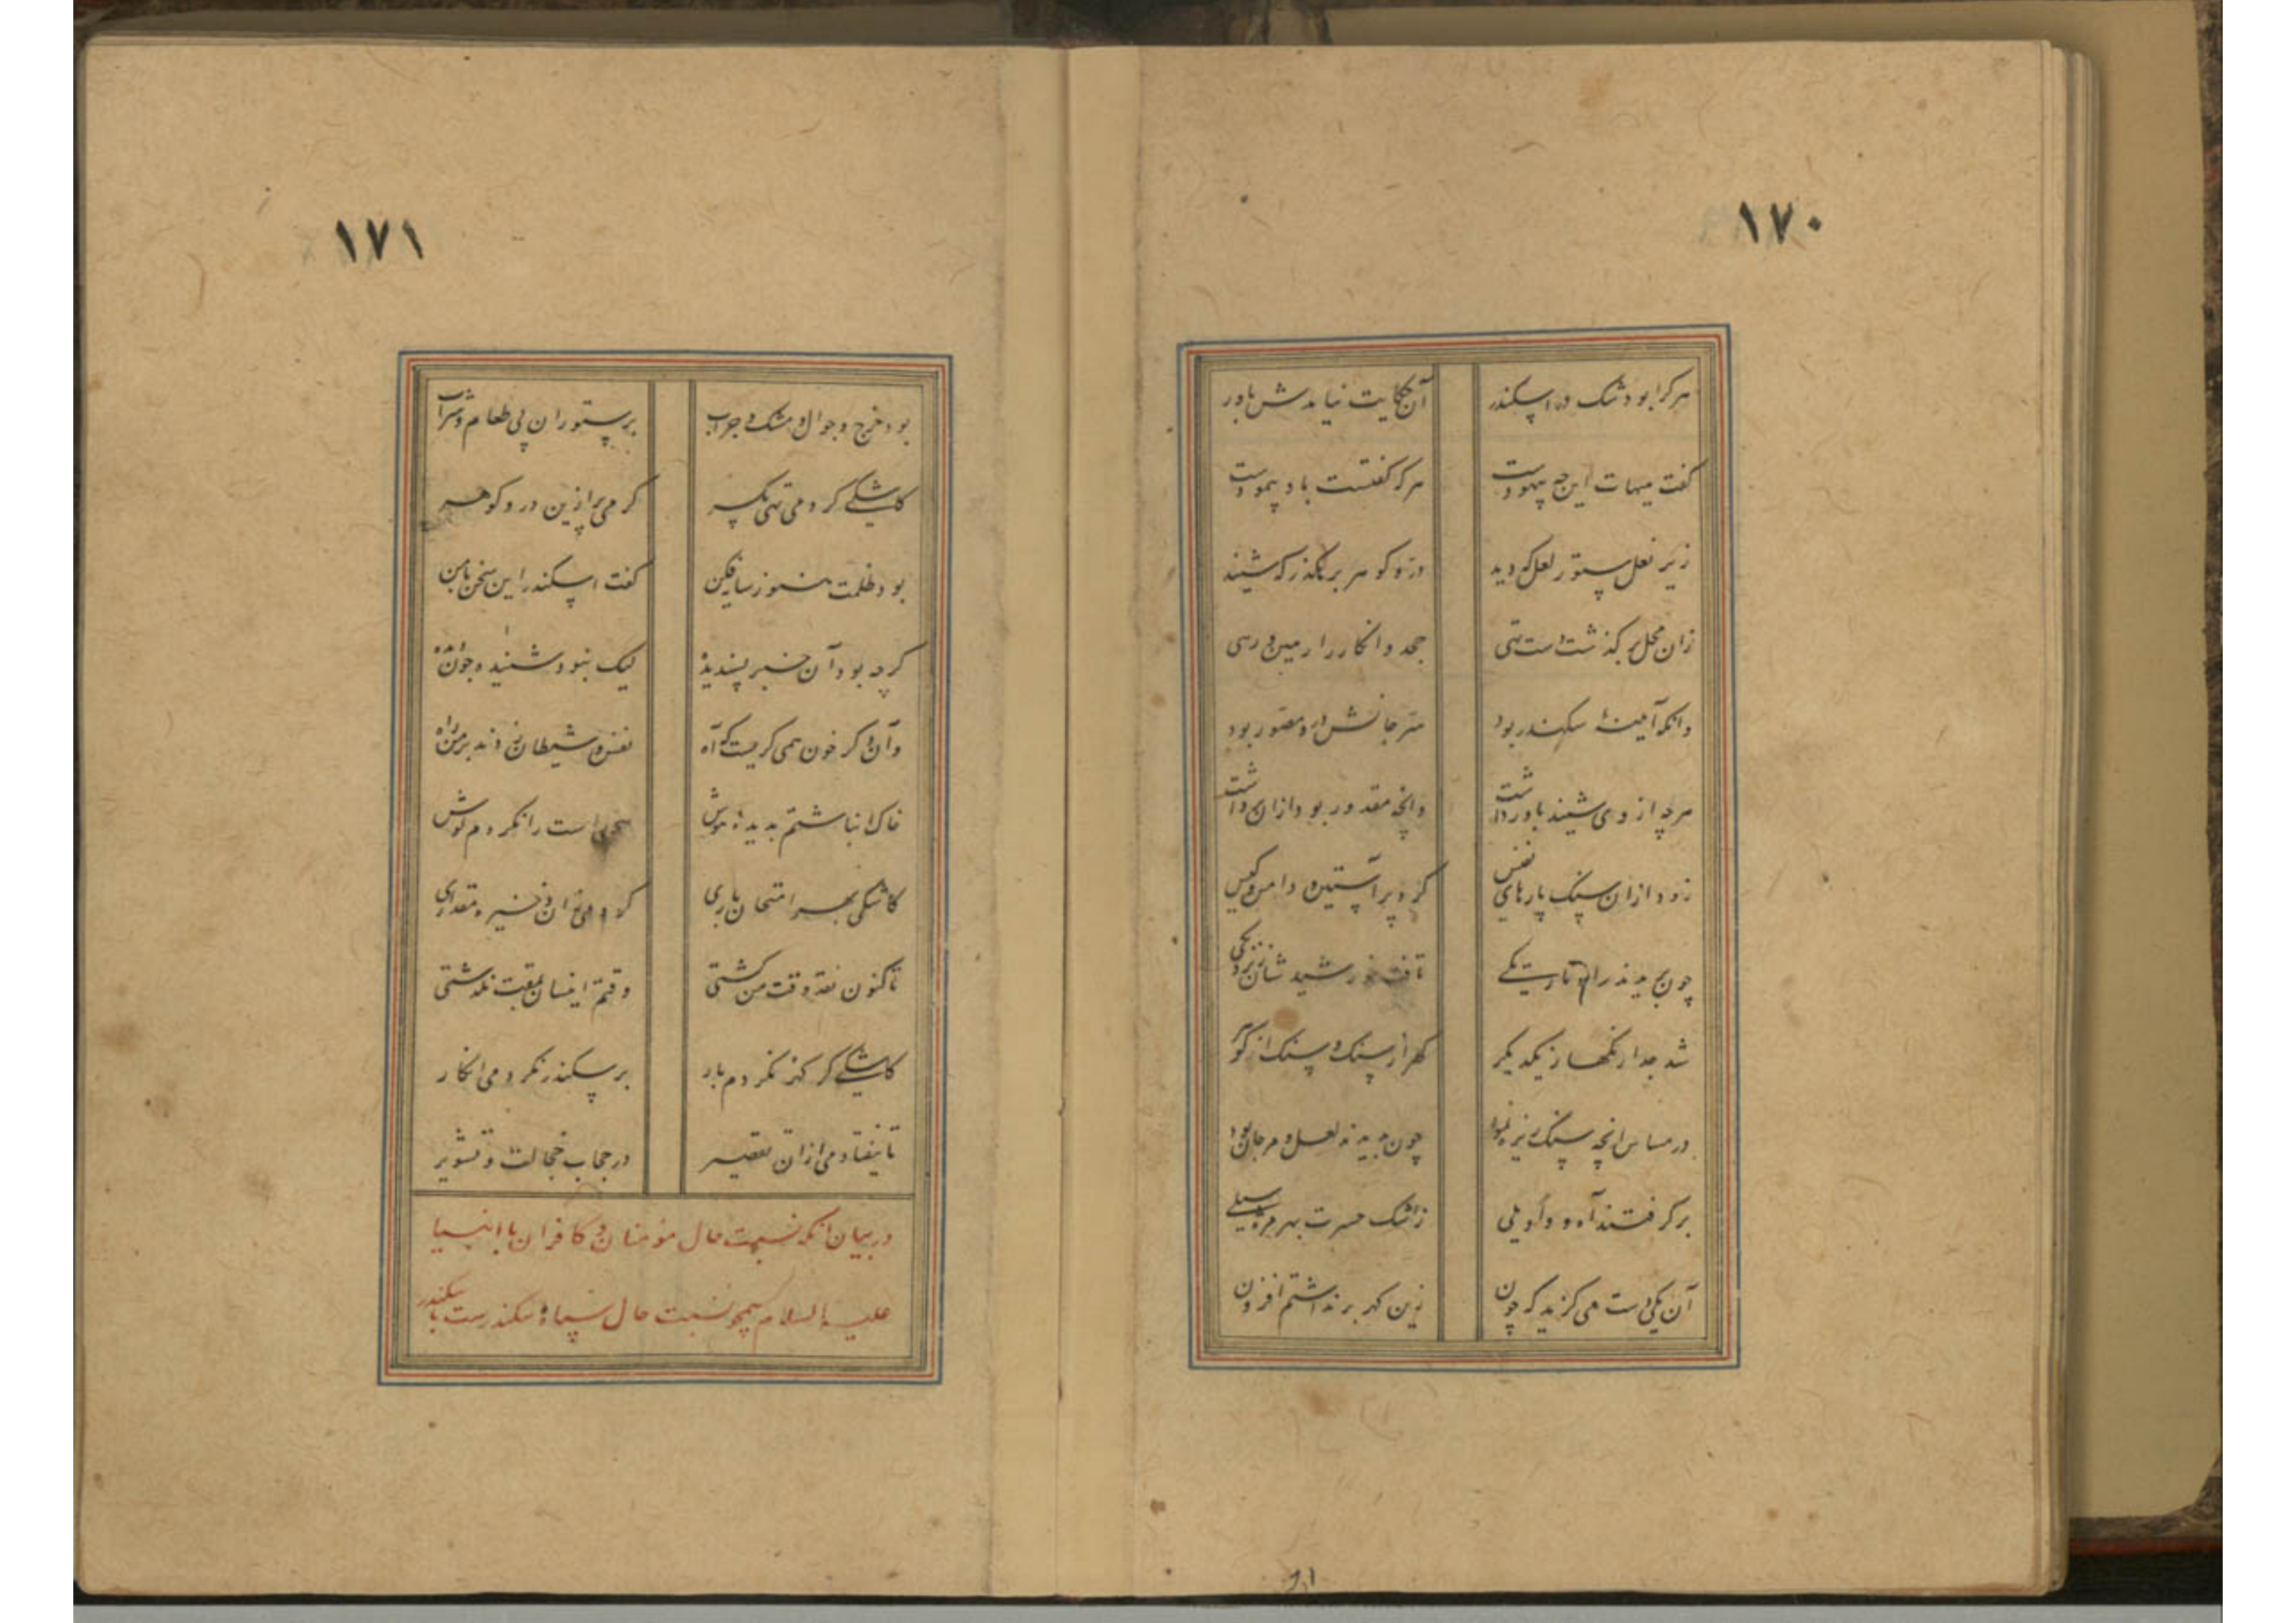 ۱۷۰
هر کرا بود شک در اسکندر آن حکایت نیامدش باور
گفت هیهات این چه بیهودست هرکه گفتست باد پیمودست
زیر نعل ستور لعل که دید در و گوهر برهگذر که شنید
زان محل بر گذشت دست تهی جحد و انکار را رهین و رهی
وانکه آیینه سکندر بود سر جانش در و مصور بود
هرچه از وی شنید باور داشت وانچه مقدور بود ازان برداشت
زود ازان سنگ پارهای نفیس کرد پر آستین و دامن و کیس
چون بریدند راه تاریکی تافت خورشید شان ز نزدیکی
شد جدا رنگها ز یکدیگر گهر از سنگ و سنگ از گوهر
در مساس انچه سنگ ریزه نمود چون بدیدند لعل و مرجان بود
برگرفتند آه و واویلی ز اشک حسرت بهر مژه سیلی
آن یکی دست می گزید که چون زین گهر برنداشتم افزون
۱۷۱
بود خرج و جوال و مشک و جراب بر ستوران پی طعام و شراب
کاشکی کردمی تهی یکسر کردمی پر ازین در و گوهر
بود ظلمت هنوز سایه فکن گفت اسکندر این سخن با من
گرچه بود آن خبر پسندیده لیک نبود شنیده چون دیده
وان دگر خون همی گریست که آه نفس و شیطان زدند بر من راه
خاک انباشتم بدیده هوش سخن راست را نکردم گوش
کاشکی بهر امتحان باری کردمی زان ذخیره مقداری
تا کنون نقد وقت من گشتی وقتم اینسان بمقت نگذشتی
کاشکی گر گهر نکردم بار بر سکندر نکردمی انکار
تا نیفتادمی ازان تقصیر در حجاب خجالت و تشویر
در بیان آنکه نسبت حال مؤمنان و کافران با انبیا
علیه السلام همچو نسبت حال سپاه سکندرست با سکندر